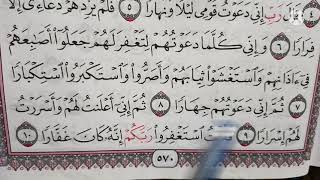 رَبِّ إِنِّي دَعَوْتُ قَوْمِي لَيْلًا وَنَهَارًا ٥ فَلَمْ يَزِدْهُمْ دُعَاءِي إِلَّا
فِرَارًا ٦ وَإِنِّي كُلَّمَا دَعَوْتُهُمْ لِتَغْفِرَ لَهُمْ جَعَلُوا أَصَابِعَهُمْ
فِي ءَاذَانِهِمْ وَاسْتَغْشَوْا ثِيَابَهُمْ وَأَصَرُّوا وَاسْتَكْبَرُوا اسْتِكْبَارًا
٧ ثُمَّ إِنِّي دَعَوْتُهُمْ جِهَارًا ٨ ثُمَّ إِنِّي أَعْلَنتُ لَهُمْ وَأَسْرَرْتُ
لَهُمْ إِسْرَارًا ٩ اسْتَغْفِرُوا رَبَّكُمْ إِنَّهُ كَانَ غَفَّارًا ١٠
٥٧٠